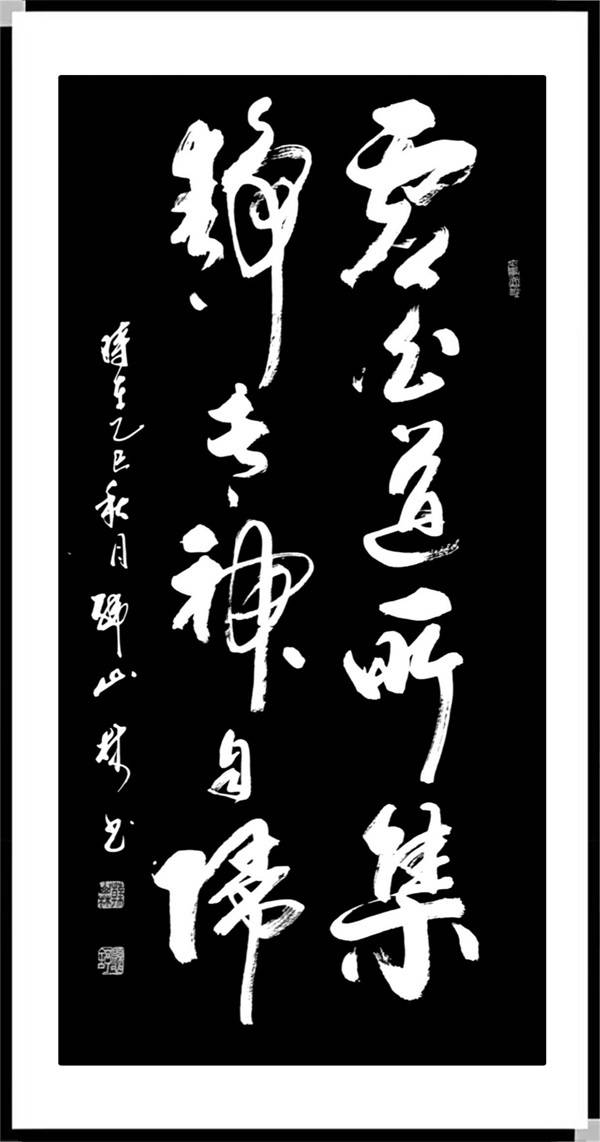 虚白道所集
静专神自归
時在乙巳秋月 山林书